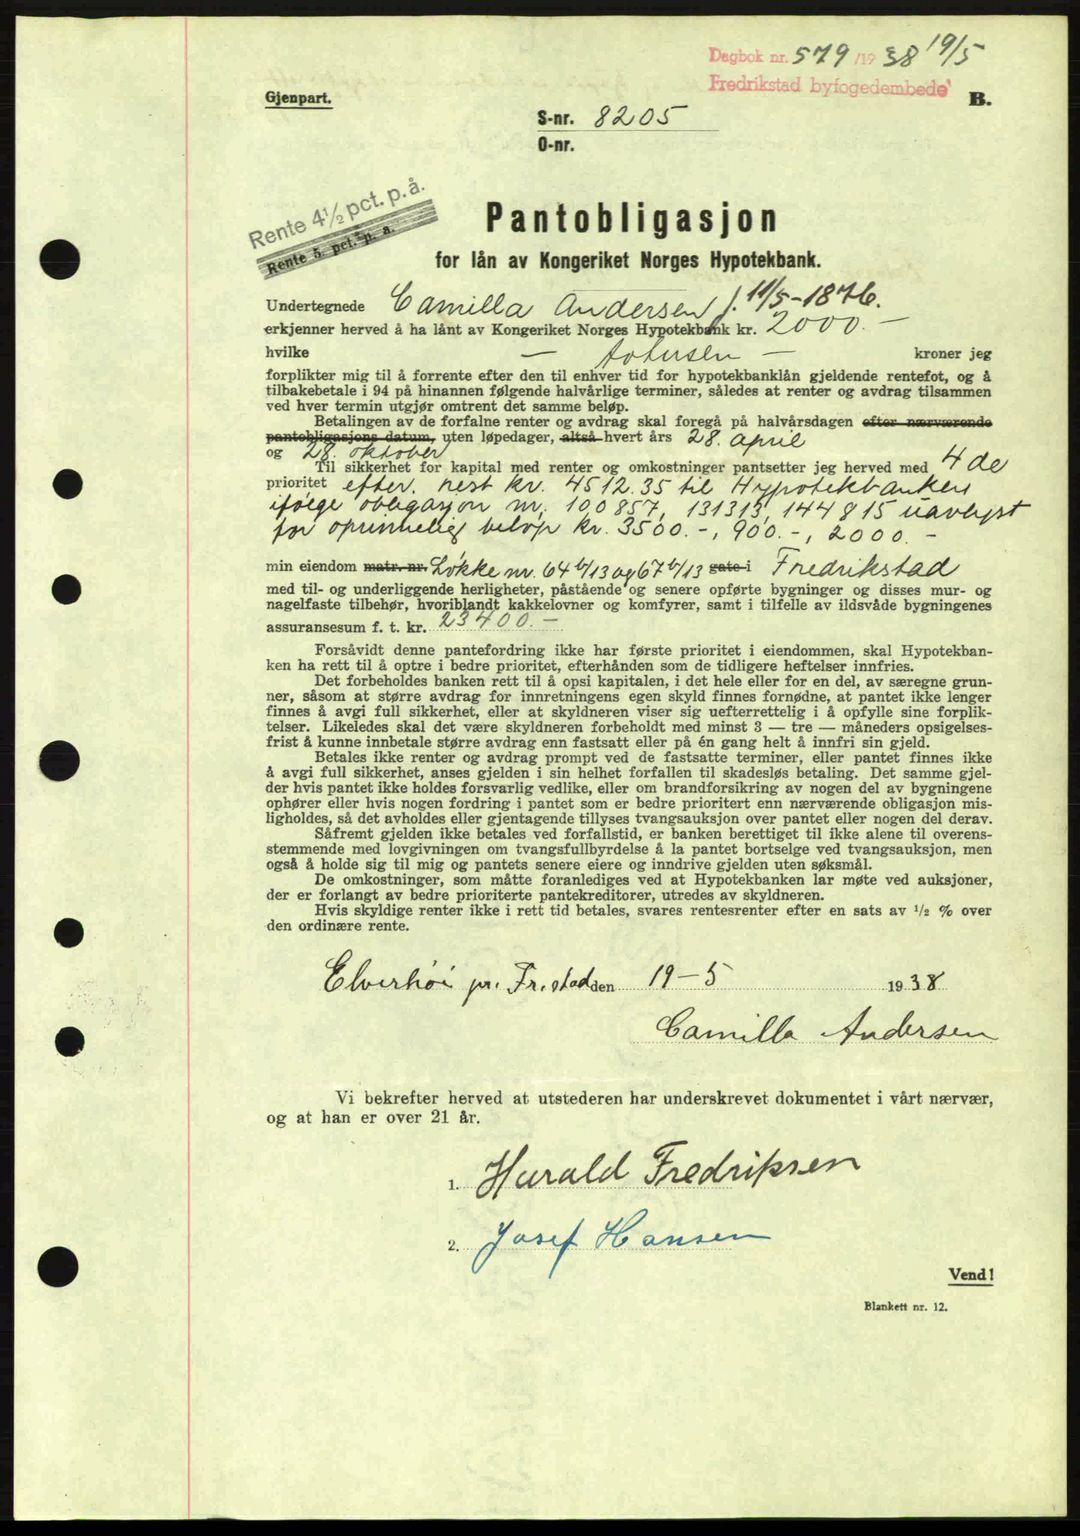 Dagbok nr. 579 /19 38 19/5
Fredrikstad byfogedembede
Gjenpart.
B.
S-nr. 8205
O-nr.
Rente 4 1/2 pct. p. å.
Rente 5. pct. p. a.
Pantobligasjon
for lån av Kongeriket Norges Hypotekbank.
Undertegnede Camilla Andersen f. 11/5-1876.
erkjenner herved å ha lånt av Kongeriket Norges Hypotekbank kr. 2000.-
hvilke — totusen — kroner jeg
forplikter mig til å forrente efter den til enhver tid for hypotekbanklån gjeldende rentefot, og å
tilbakebetale i 94 på hinannen følgende halvårlige terminer, således at renter og avdrag tilsammen
ved hver termin utgjør omtrent det samme beløp.
Betalingen av de forfalne renter og avdrag skal foregå på halvårsdagen efter nærværende
pantobligasjons datum, uten løpedager, altså hvert års 28. april
og 28. oktober
Til sikkerhet for kapital med renter og omkostninger pantsetter jeg herved med 4 de
prioritet efter. rest kr. 4512.35 til Hypotekbanken
ifølge obligasjon nr. 100857, 131313, 144815 uavlyst
for oprinnelig beløp kr. 3500.-, 900.-, 2000.-
min eiendom matr. nr. Løkke nr. 64 b/13 og 67 b/13 gate i Fredrikstad
med til- og underliggende herligheter, påstående og senere opførte bygninger og disses mur- og
nagelfaste tilbehør, hvoriblandt kakkelovner og komfyrer, samt i tilfelle av ildsvåde bygningenes
assuransesum f. t. kr. 23400.-
Forsåvidt denne pantefordring ikke har første prioritet i eiendommen, skal Hypotekban-
ken ha rett til å optre i bedre prioritet, efterhånden som de tidligere heftelser innfries.
Det forbeholdes banken rett til å opsi kapitalen, i det hele eller for en del, av særegne grun-
ner, såsom at større avdrag for innretningens egen skyld finnes fornødne, at pantet ikke lenger
finnes å avgi full sikkerhet, eller at skyldneren viser sig uefterrettelig i å opfylle sine forplik-
telser. Likeledes skal det være skyldneren forbeholdt med minst 3 — tre — måneders opsigelses-
frist å kunne innbetale større avdrag enn fastsatt eller på én gang helt å innfri sin gjeld.
Betales ikke renter og avdrag prompt ved de fastsatte terminer, eller pantet finnes ikke
å avgi full sikkerhet, anses gjelden i sin helhet forfallen til skadesløs betaling. Det samme gjel-
der hvis pantet ikke holdes forsvarlig vedlike, eller om brandforsikring av nogen del av bygningene
ophører eller hvis nogen fordring i pantet som er bedre prioritert enn nærværende obligasjon mis-
ligholdes, så det avholdes eller gjentagende tillyses tvangsauksjon over pantet eller nogen del derav.
Såfremt gjelden ikke betales ved forfallstid, er banken berettiget til ikke alene til overens-
stemmende med lovgivningen om tvangsfullbyrdelse å la pantet bortselge ved tvangsauksjon, men
også å holde sig til mig og pantets senere eiere og inndrive gjelden uten søksmål.
De omkostninger, som måtte foranlediges ved at Hypotekbanken lar møte ved auksjoner,
der er forlangt av bedre prioriterte pantekreditorer, utredes av skyldneren.
Hvis skyldige renter ikke i rett tid betales, svares rentesrenter efter en sats av 1/2 % over
den ordinære rente.
Elverhöi pr. Fr.stad den 19-5 1938
Camilla Andersen
Vi bekrefter herved at utstederen har underskrevet dokumentet i vårt nærvær,
og at han er over 21 år.
1. Harald Fredriksen
2. Josef Hansen
Vend!
Blankett nr. 12.